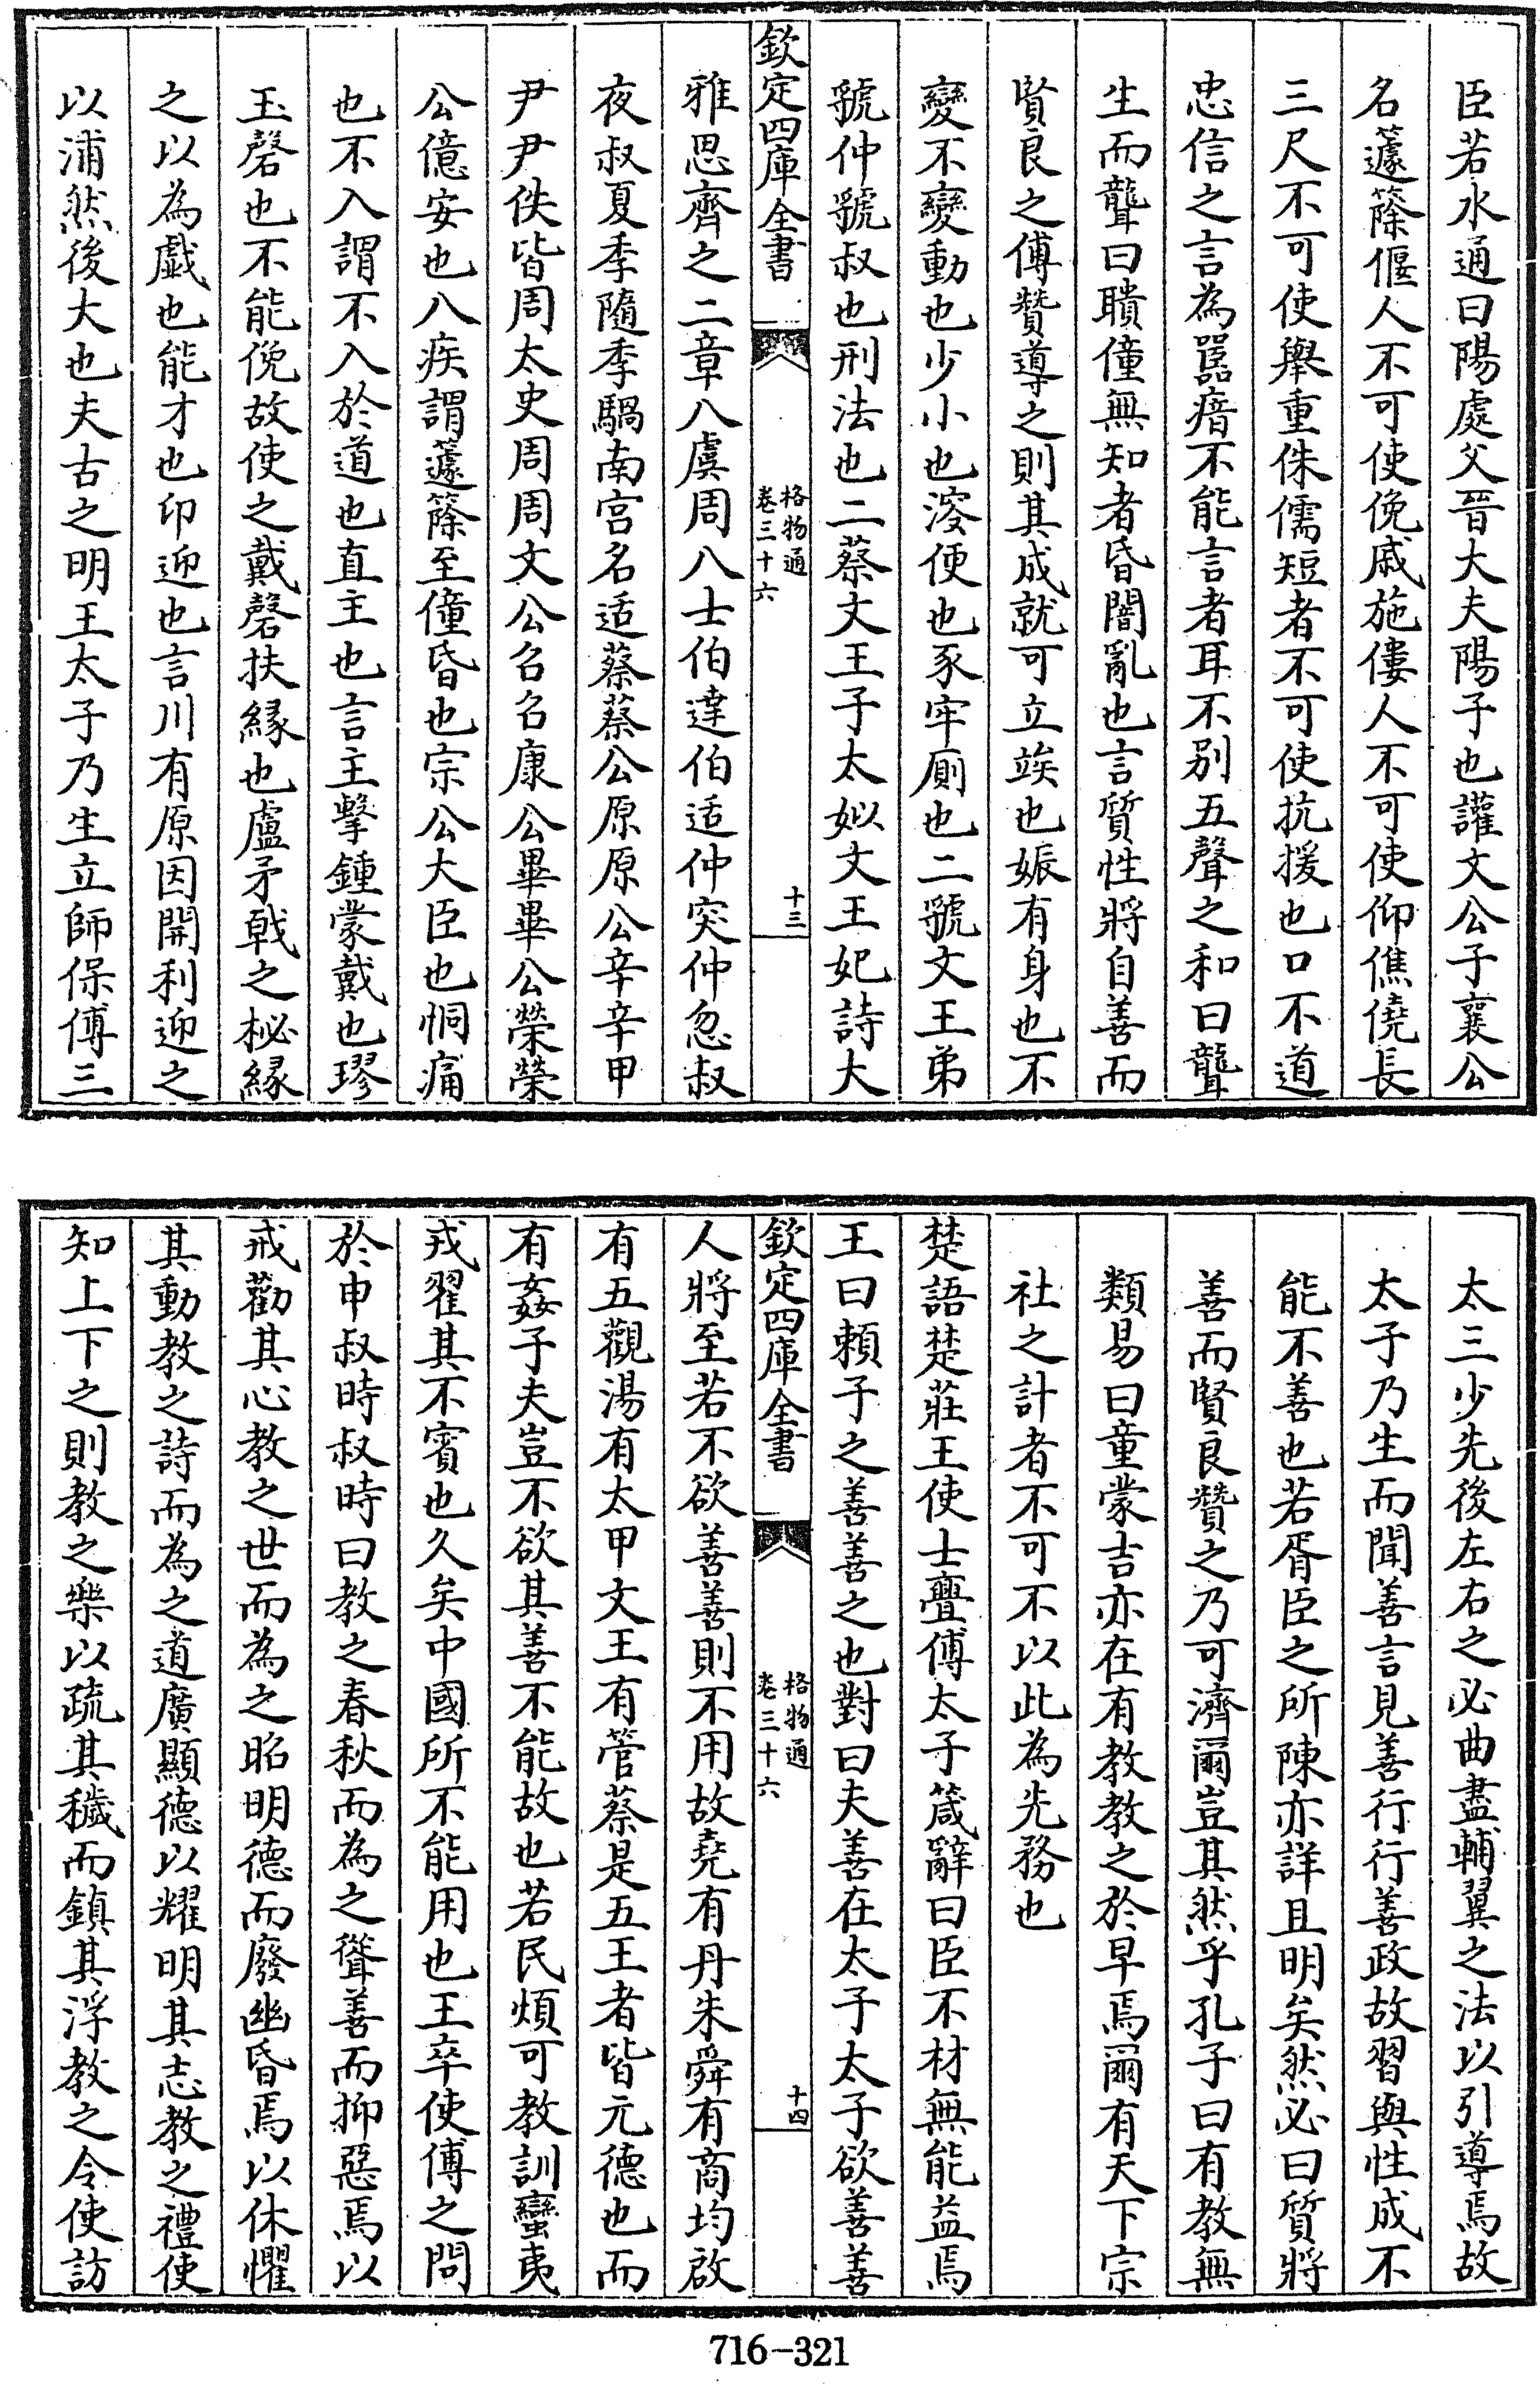 臣若水通曰陽處父晉大夫陽子也讙文公子襄公
名蘧篨偃人不可使俛戚施僂人不可使仰僬僥長
三尺不可使舉重侏儒短者不可使抗援也口不道
忠信之言為嚚瘖不能言者耳不别五聲之和曰聾
生而聾曰聵僮無知者昏闇亂也言質性將自善而
賢良之傅贊導之則其成就可立竢也娠有身也不
變不變動也少小也溲便也豕牢厠也二虢文王弟
虢仲虢叔也刑法也二蔡文王子太姒文王妃詩大
欽定四庫全書
格物通
卷三十六
十三
雅思齊之二章八虞周八士伯達伯适仲突仲忽叔
夜叔夏季隨季騧南宫名适蔡蔡公原原公辛辛甲
尹尹佚皆周太史周周文公召召康公畢畢公榮榮
公億安也八疾謂蘧篨至僮昏也宗公大臣也恫痛
也不入謂不入於道也直主也言主擊鍾蒙戴也璆
玉磬也不能俛故使之戴磬扶緣也盧矛戟之柲緣
之以為戯也能才也印迎也言川有原因開利迎之
以浦然後大也夫古之明王太子乃生立師保傅三
太三少先後左右之必曲盡輔翼之法以引導焉故
太子乃生而聞善言見善行行善政故習與性成不
能不善也若胥臣之所陳亦詳且明矣然必曰質將
善而賢良贊之乃可濟爾豈其然乎孔子曰有教無
類易曰童蒙吉亦在有教教之於早焉爾有天下宗
社之計者不可不以此為先務也
楚語楚莊王使士亹傅太子箴辭曰臣不材無能益焉
王曰頼子之善善之也對曰夫善在太子太子欲善善
欽定四庫全書
格物通
卷三十六
十四
人將至若不欲善善則不用故堯有丹朱舜有商均啟
有五觀湯有太甲文王有管蔡是五王者皆元德也而
有姦子夫豈不欲其善不能故也若民煩可教訓蠻夷
戎翟其不賓也久矣中國所不能用也王卒使傅之問
於申叔時叔時曰教之春秋而為之聳善而抑惡焉以
戒勸其心教之世而為之昭明德而廢幽昏焉以休懼
其動教之詩而為之道廣顯德以耀明其志教之禮使
知上下之則教之樂以疏其穢而鎮其浮教之令使訪
716-321